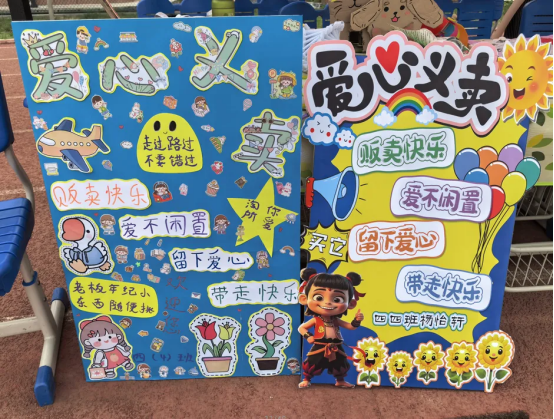 爱心义
卖
走过路过
不要错过
贩卖快乐
淘你
所爱
爱不闲置
留下爱心
老板年纪小
东西随便挑
带走快乐
四(4)班
爱心义卖
贩卖快乐
爱不闲置
买它
留下爱心
带走快乐
四四班杨怡轩